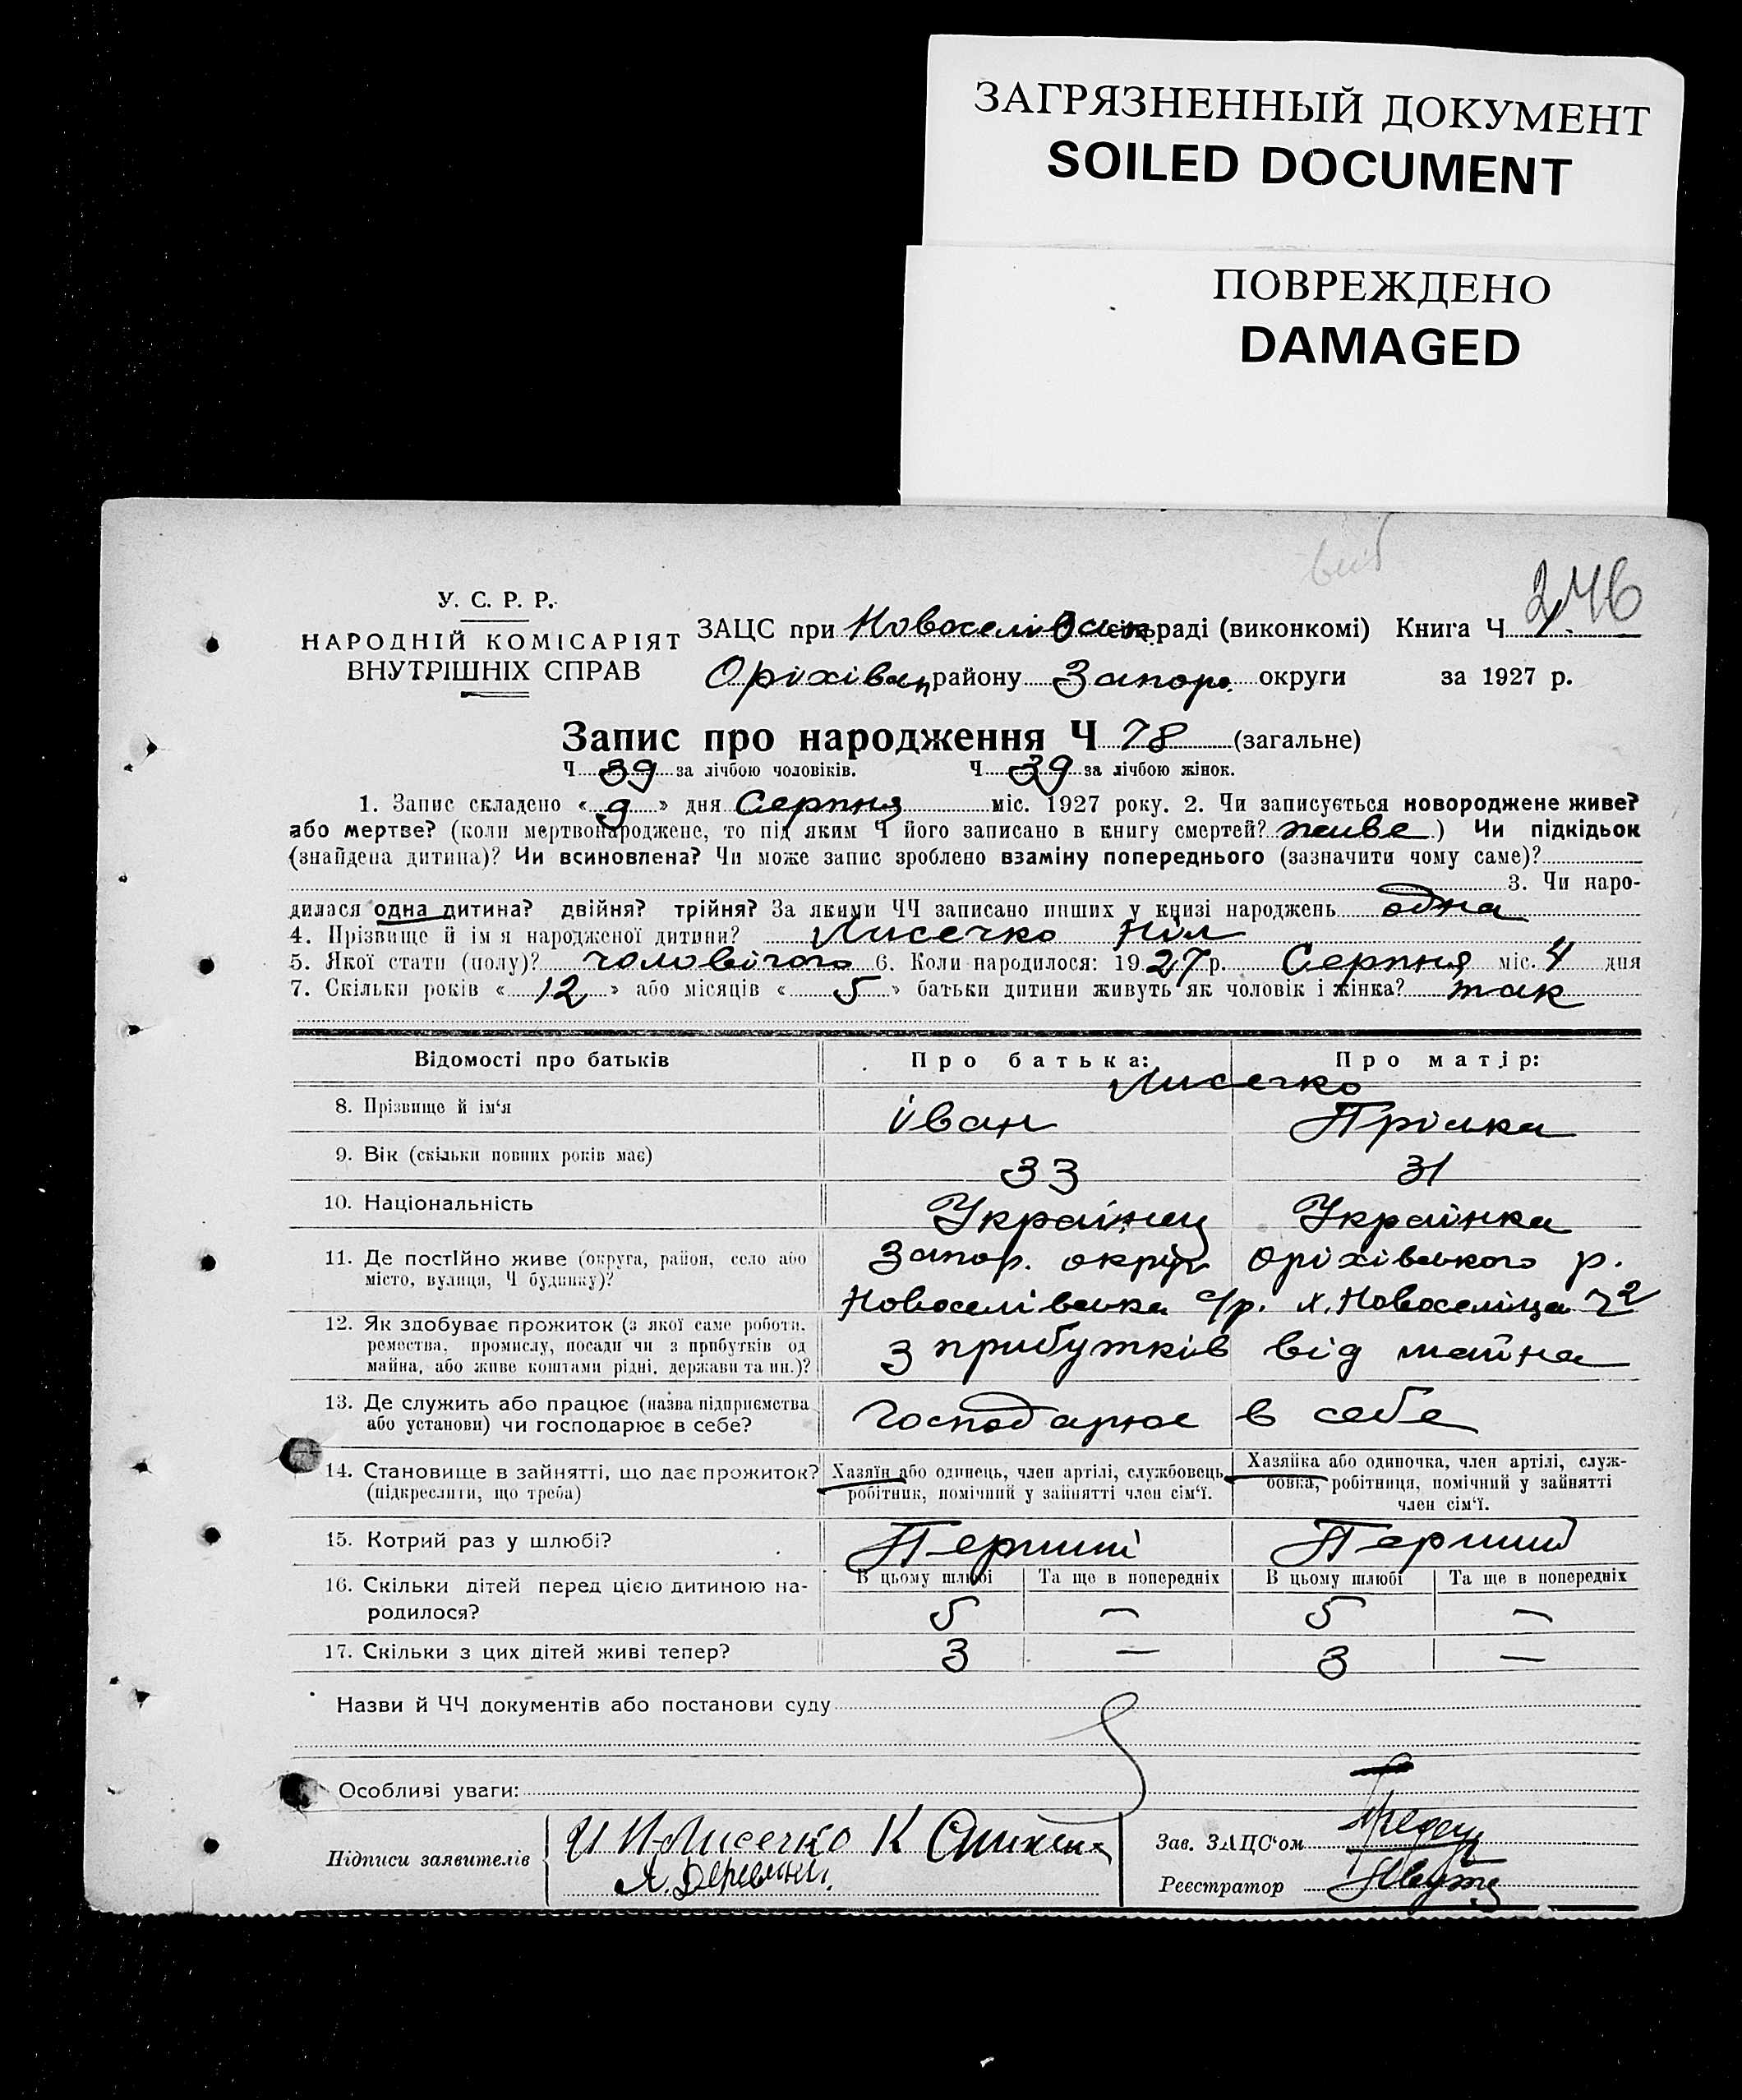 ЗАГРЯЗНЕННЫЙ ДОКУМЕНТ
SOILED DOCUMENT
ПОВРЕЖДЕНО
DAMAGED
246
У. С. Р. Р.
НАРОДНІЙ КОМІСАРІЯТ
ВНУТРІШНІХ СПРАВ
ЗАЦС при Новоселівськ. раді (виконкомі) Книга Ч 1
Оріхівськ району Запор. округи за 1927 р.
Запис про народження Ч 78 (загальне)
Ч 39 за лічбою чоловіків. Ч 39 за лічбою жінок.
1. Запис складено « 9 » дня Серпня міс. 1927 року. 2. Чи записується новороджене живе?
або мертве? (коли мертвонароджене, то під яким Ч його записано в книгу смертей? живе ) Чи підкідьок
(знайдена дитина)? Чи всиновлена? Чи може запис зроблено взаміну попереднього (зазначити чому саме)?
3. Чи наро-
дилася одна дитина? двійня? трійня? За якими ЧЧ записано инших у книзі народжень одна
4. Прізвище й ім'я народженої дитини? Лисечко Ніл
5. Якої стати (полу)? чоловічого 6. Коли народилося: 1927 р. Серпня міс. 4 дня
7. Скільки років « 12 » або місяців « 5 » батьки дитини живуть як чоловік і жінка? так
Відомості про батьків Про батька: Про матір:
Лисечко
8. Прізвище й ім'я Іван
9. Вік (скільки повних років має) 33 31
10. Національність Українец Українка
11. Де постійно живе (округа, район, село або Запор. округ Оріхівського р.
місто, вулиця, Ч будинку)? Новоселівська с/р. х. Новоселіца ч 2
12. Як здобуває прожиток (з якої саме роботи,
ремества, промислу, посади чи з прибутків од з прибутків від майна
майна, або живе коштами рідні, держави та ин.)?
13. Де служить або працює (назва підприємства Господарює в себе
або установи) чи господарює в себе?
14. Становище в зайнятті, що дає прожиток? Хазяїн або одинець, член артілі, службовець, Хазяйка або одиночка, член артілі, служ-
(підкреслити, що треба) робітник, помічний у зайнятті член сім'ї. бовка, робітниця, помічний у зайнятті
член сім'ї.
15. Котрий раз у шлюбі? Перший Перший
16. Скільки дітей перед цією дитиною на- В цьому шлюбі Та ще в попередніх В цьому шлюбі Та ще в попередніх
родилося? 5 — 5 —
17. Скільки з цих дітей живі тепер? 3 — 3 —
Назви й ЧЧ документів або постанови суду
Особливі уваги:
Підписи заявителів И Лисечко К
Зав. ЗАЦС'ом
Реєстратор